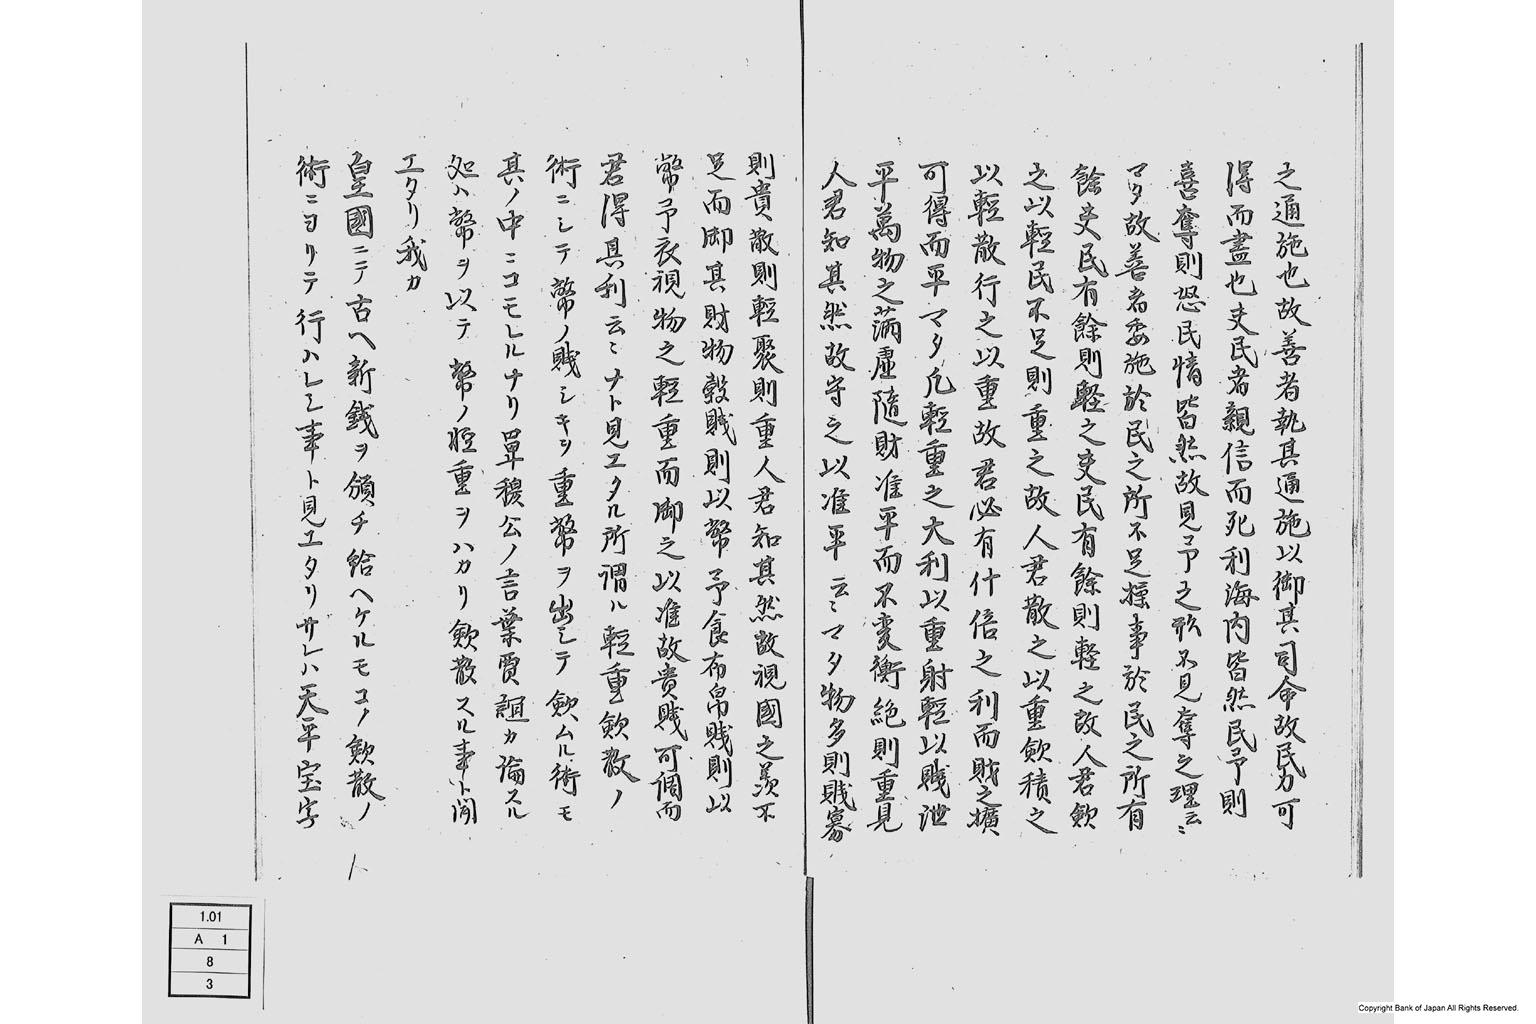 之通施也故善者執其通施以御其司命故民力可
得而盡也吏民者親信而死利海内皆然民予則
喜奪則恐民情皆然故見予之形不見奪之理云〻
マタ故善者委施於民之所不足操事於民之所有
餘吏民有餘則軽之吏民有餘則軽之故人君歛
之以輕民不足則重之故人君散之以重歛積之
以輕散行之以重故君必有什倍之利而財之擴
可得而平マタ凡輕重之大利以重射輕以賎泄
平萬物之滿虚隨財准平而不変衡絶則重見
人君知其然故守之以准平云〻マタ物多則賎寡
則貴散則輕聚則重人君知其然故視國之羨不
足而御其財物穀賎則以幣予食布帛賎則以
幣予衣視物之輕重而御之以准故貴賎可調而
君得其利云〻ナト見エタル所謂ル輕重歛散ノ
術ニシテ幣ノ賎シキヲ重幣ヲ出シテ歛ムル術モ
其ノ中ニコモレルナリ單穆公ノ言葉賈誼カ論スル
処ハ幣ヲ以テ幣ノ軽重ヲハカリ歛散スル事ト聞
エタリ我カ
皇國ニテ古ヘ新銭ヲ頒チ給ヘケルモコノ歛散ノ
術ニヨリテ行ハレシ事ト見エタリサレハ天平宝字
1.01
A 1
8
3
Copyright Bank of Japan All Rights Reserved.